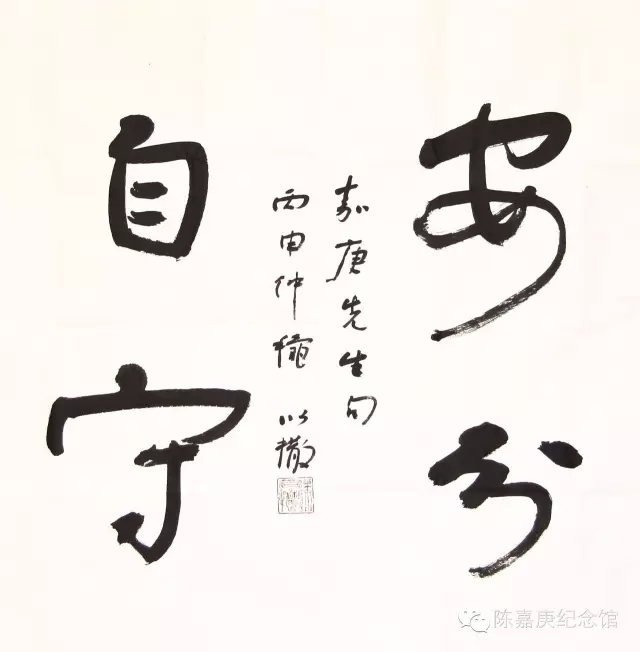 安分
自守
嘉庚先生句
丙申仲秋 以撒
陈嘉庚纪念馆